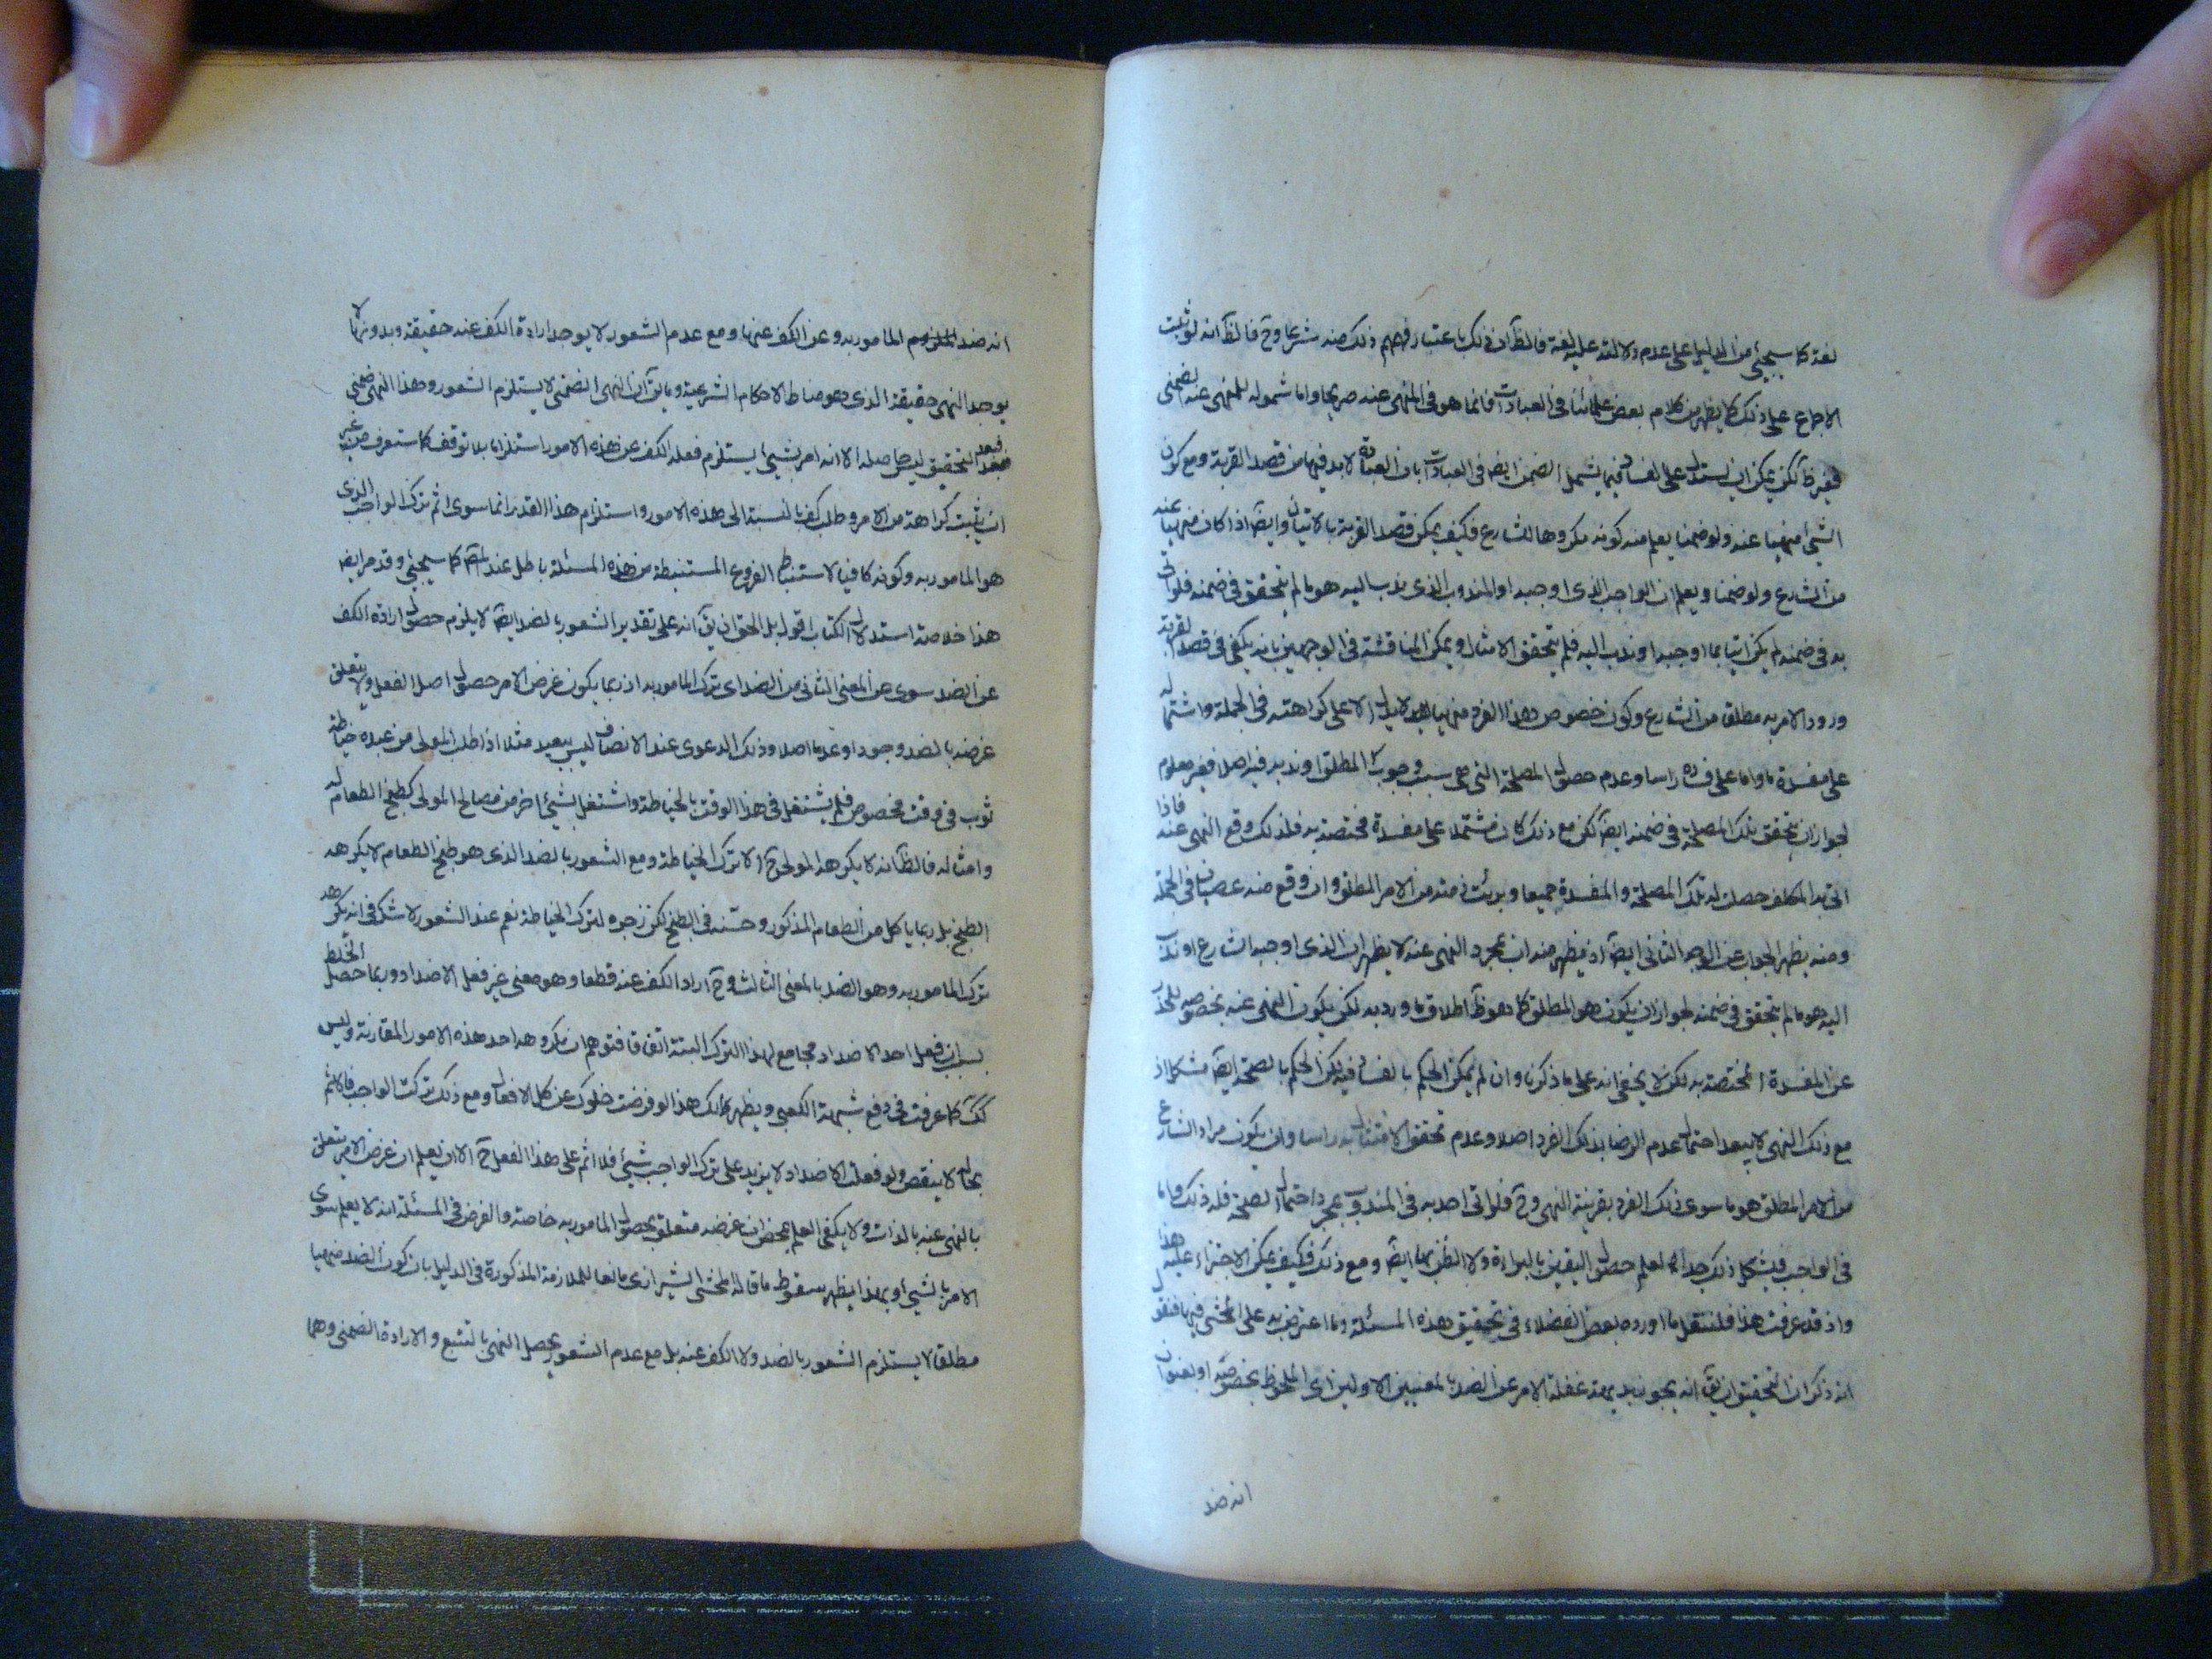 لغة كما سيجئ من الدليل على عدم دلالته عليه لغة فالظ ان ذلك باعتبار فهم ذلك منه شرعا وح فالظ انه لو ثبت
الاجماع على ذلك كما يظهر من كلام بعض علمائنا في العبادات فانما هو في المنهى عنه صريحا واما شموله للمنهى عنه الضمنى
فغير ظ لكن يمكن ان يستدل على الفساد فيما يشمل الضمن ايضا في العبادات بان العبادة لابد فيها من قصد القربة ومع كون
الشئ منهيا عنه ولو ضمنا يعلم منه كونه مكروها للشارع فكيف يمكن قصد القربة بالاتيان وايضا اذا كان منهيا عنه
من الشارع ولو ضمنا ويعلم ان الواجب الذى اوجبه او المندوب الذى ندب اليه هو ما لم يتحقق في ضمنه فلو اتى
به في ضمنه لم يكن اتيا بما اوجبه او ندب اليه فلم يتحقق الامتثال ويمكن المناقشة في الوجهين بانه يكفى في قصد القربة
ورود الامر به مطلقا من الشارع وكون خصوص هذا الفرد منهيا عنه لا يدل الا على كراهته في الجملة واشتماله
على مفسدة ما واما على فساده راسا وعدم حصول المصلحة التى هى سبب وجوب المطلق او ندبه فيه اصلا فغير معلوم
لجواز ان يتحقق تلك المصلحة في ضمنه ايضا لكن مع ذلك كان مشتملا على مفسدة مختصة به فلذلك وقع النهى عنه فاذا
اتى به المكلف حصلت له تلك المصلحة والمفسدة جميعا وبرئت ذمته من الامر المطلق وان وقع منه عصيان في الجملة
ومنه يظهر الجواب عن الوجه الثانى ايضا اذ يظهر منه ان بمجرد النهى عنه لا يظهر ان الذى اوجبه الشارع او ندب
اليه هو ما لم يتحقق في ضمنه لجواز ان يكون هو المطلق كما هو ظ اطلاق ما ورد به لكن يكون النهى عنه بخصوصه للحذر
عن المفسدة المختصة به لكن لا يخفى انه على ما ذكرنا وان لم يمكن الحكم بالفساد فيه لكن الحكم بالصحة ايضا مشكل اذ
مع ذلك النهى لا يبعد احتمال عدم الرضا بذلك الفرد اصلا وعدم تحقق الامتثال به راسا وان يكون مراد الشارع
من الامر المطلق هو ما سوى ذلك الفرد بقرينة النهى وح فلو اتى احد به في المندوب بمجرد احتمال الصحة فله ذلك واما
في الواجب فيشكل ذلك جدا لعدم حصول اليقين بالبراءة ولا الظن بها ايضا ومع ذلك فكيف يمكن الاجتزاء عليه هذا
واذ قد عرفت هذا فلننقل ما اورده بعض الفضلاء في تحقيق هذه المسئلة وما اعترض به على المحشى فيها فنقول
انه ذكر ان التحقيق ان يق انه يجوز بديهة غفلة الامر عن الضد بالمعنيين الاولين اى الملحوظ بخصوصه او بعنوان
انه ضد
انه ضد المامور به وعن الكف عنها ومع عدم الشعور لا يوجد ارادة الكف عنه حقيقة وبدونها لا
يوجد النهى حقيقة الذى هو مناط الاحكام الشرعية وما يق ان النهى الضمنى لا يستلزم الشعور وهذا النهى ضمنى
فبعد التحقيق ليس حاصله الا انه امر بشئ يستلزم فعله الكف عن هذه الامور استلزاما بلا توقف كما ستعرف من غير
ان يثبت كراهة من الامر وطلب كف بالنسبة الى هذه الامور واستلزام هذا القدر اثما سوى اثم ترك الواجب الذى
هو المامور به وكونه كافيا لاستنباط الفروع المستنبطة من هذه المسئلة باطل عند المص كما سيجئ وقد مر ايضا
هذا خلاصة استدلال الكتاب اقول بل الحق ان يق انه على تقدير الشعور بالضد ايضا لا يلزم حصول ارادة الكف
عن الضد سوى عن المعنى الثانى من الضد اى ترك المامور به اذ ربما يكون غرض الامر حصول اصل الفعل ولا يتعلق
غرضه بالضد وجودا وعدما اصلا وذلك الدعوى عند الانصاف ليس ببعيد مثلا اذا طلب المولى من عبده خياطة
ثوب في وقت مخصوص فلم يشتغل في هذا الوقت بالخياطة واشتغل بشئ اخر من مصالح المولى كطبخ الطعام له
وامثاله فالظ انه لا يكره المولى ح الا ترك الخياطة ومع الشعور بالضد الذى هو طبخ الطعام لا يكره
الطبخ بل ربما ياكل من الطعام المذكور وحسنه في الطبخ لكن زجره لترك الخياطة نعم عند الشعور لا شك في انه يكره
ترك المامور به وهو الضد بالمعنى الثالث وح اراد الكف عنه قطعا وهو معنى غير فعل الاضداد وربما حصل الخلط
بسبب ان فعل احد الاضداد مجامع لهذا الترك البتة اتفاقا فتوهم ان مكروهه احد هذه الامور المقارنة وليس
كك كما عرفت في دفع شبهة الكعبى ويظهر لك هذا لو فرضت خلوك عن كل الافعال ومع ذلك تركت الواجب فالاثم
بحاله لا ينقص ولو فعلت الاضداد لا يزيد على ترك الواجب شئ فلا اثم على هذا الفعل ح الا ان يعلم ان غرض الامر يتعلق
بالنهى عنه بالذات ولا يكفى العلم بمحض ان غرضه متعلق بحصول المامور به خاصة والفرض في المسئلة انه لا يعلم سوى
الامر بالشئ وبهذا يظهر سقوط ما قاله المحشى الشيرازى مانعا للملازمة المذكورة في الدليل بان كون الضد منهيا
مطلقا لا يستلزم الشعور بالضد ولا الكف عنه بل مع عدم الشعور يحصل النهى بالتبع والارادة الضمنى وهما